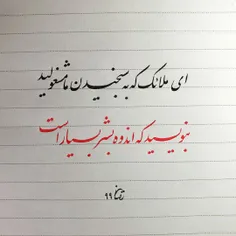 ای ملائک که به سنجیدن ما مشغولید
بنویسید که اندوه بشر بسیار است
۹۹